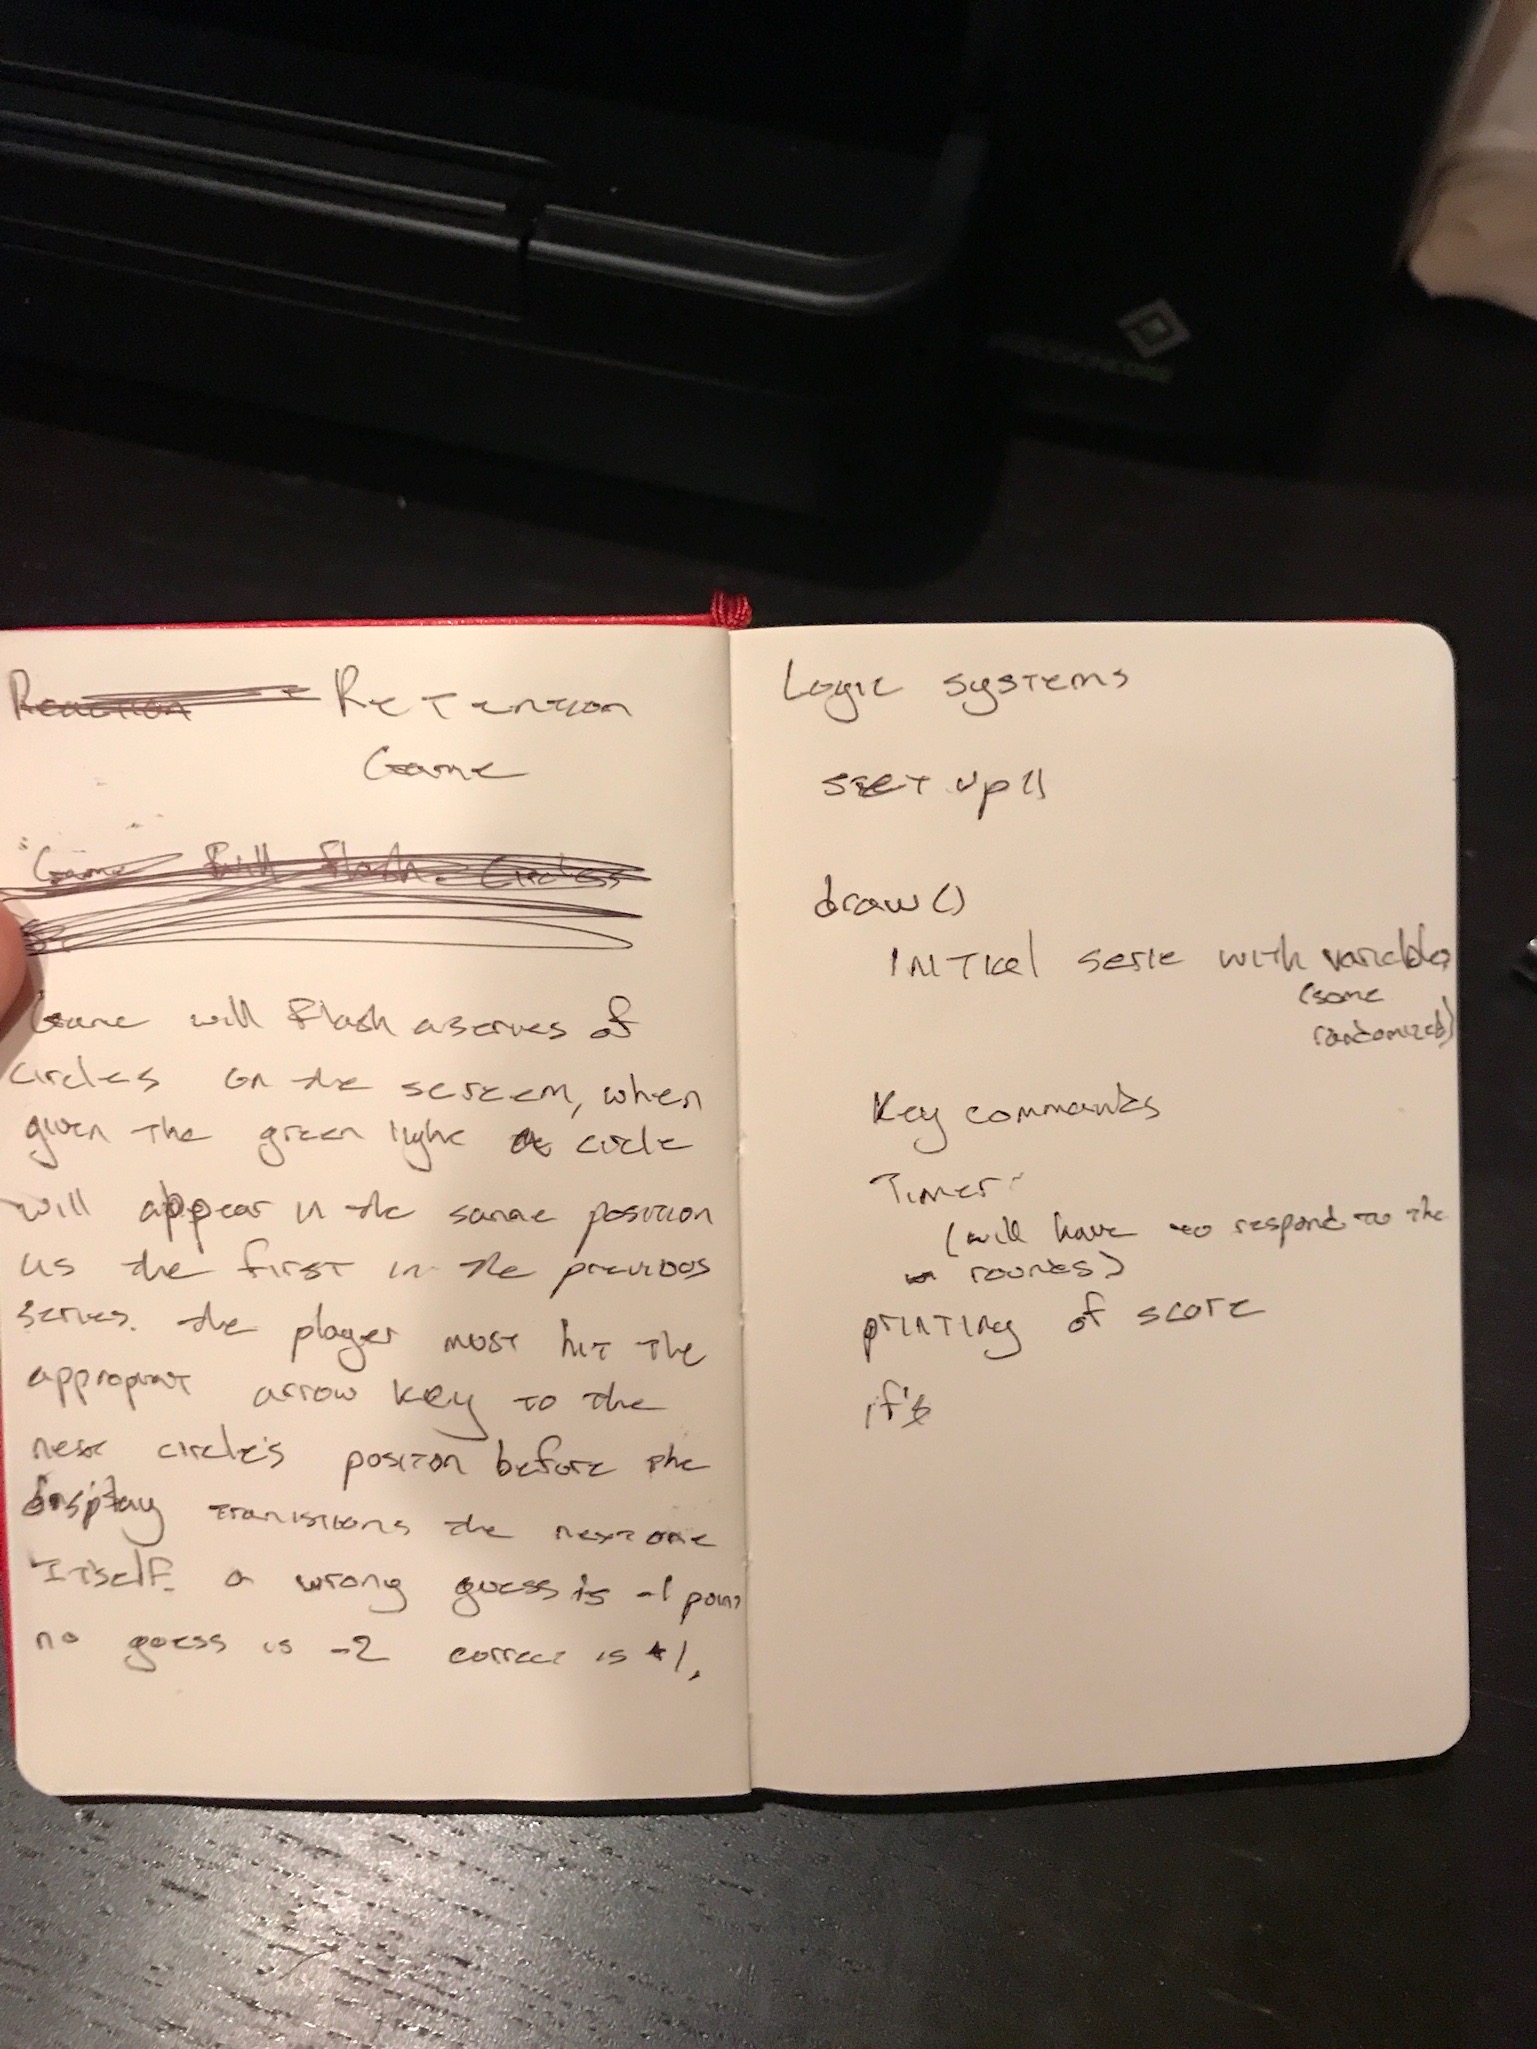 Reaction Retention
Game
Game will flash circles
Game will flash a series of
circles on the screen, when
given the green light a circle
will appear in the same position
as the first in the previous
series. the player must hit the
appropriat arrow key to the
next circle's positon before the
display transitions the next one
itself. a wrong guess is -1 point
no guess is -2 correct is +1.
Logic systems
setup()
draw()
Initial serie with variables
(some
randomized)
Key commands
Timer
(will have to respond to the
rounds)
printing of score
if's